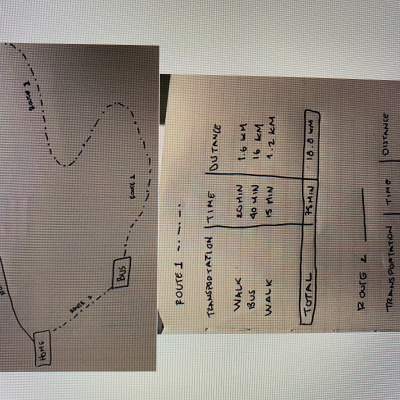 ROUTE 1
ROUTE 1
BUS
ROUTE 1
HOME
ROUTE 1
TRANSPORTATION TIME DISTANCE
WALK 20 MIN 1.6 KM
BUS 40 MIN 16 KM
WALK 15 MIN 1.2 KM
TOTAL 75 MIN 18.8 KM
ROUTE 2
TRANSPORTATION TIME DISTANCE